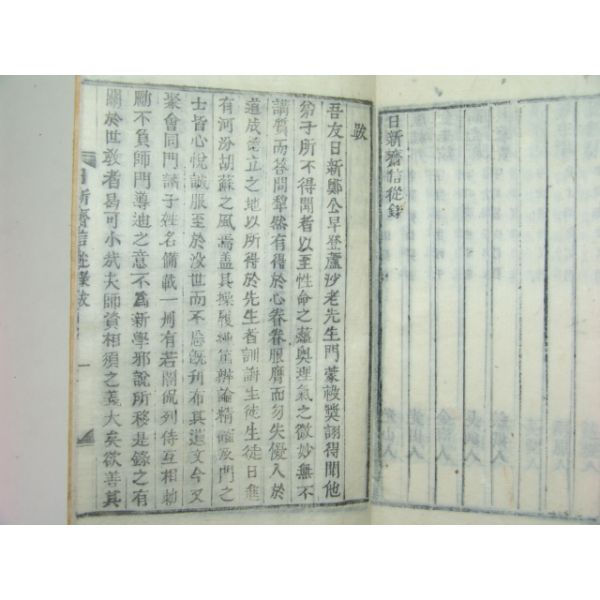 日新齋信從錄
跋
吾友日新鄭公早登蘆沙老先生門蒙被獎詡得聞他
弟子所不得聞者以至性命之蘊奧理氣之微妙無不
講質而答問犂然有得於心眷眷服膺而勿失優入於
道成德立之地以所得於先生者訓誨生徒生徒日進
有河汾胡蘇之風焉盖其操履純篤辨論精詳及門之
士皆心悅誠服至於沒世而不忘旣刊布其遺文今又
聚會同門諸子姓名備載一冊有若誾侃列侍互相勅
勵不負師門導迪之意不爲新學邪說所移是錄之有
關於世敎者曷可小哉夫師資相須之義大矣欲善其
日新齋信從錄跋 一